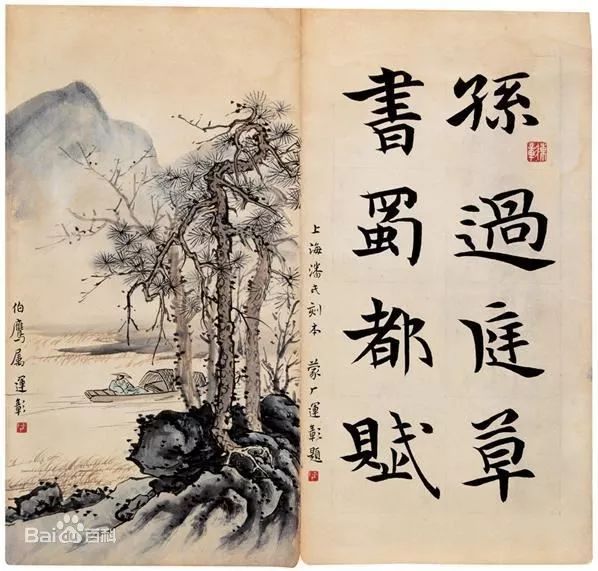 孫過庭草
書蜀都賦
上海潘氏刻本　蒙厂運彰題
伯鷹屬運彰
Bai百科